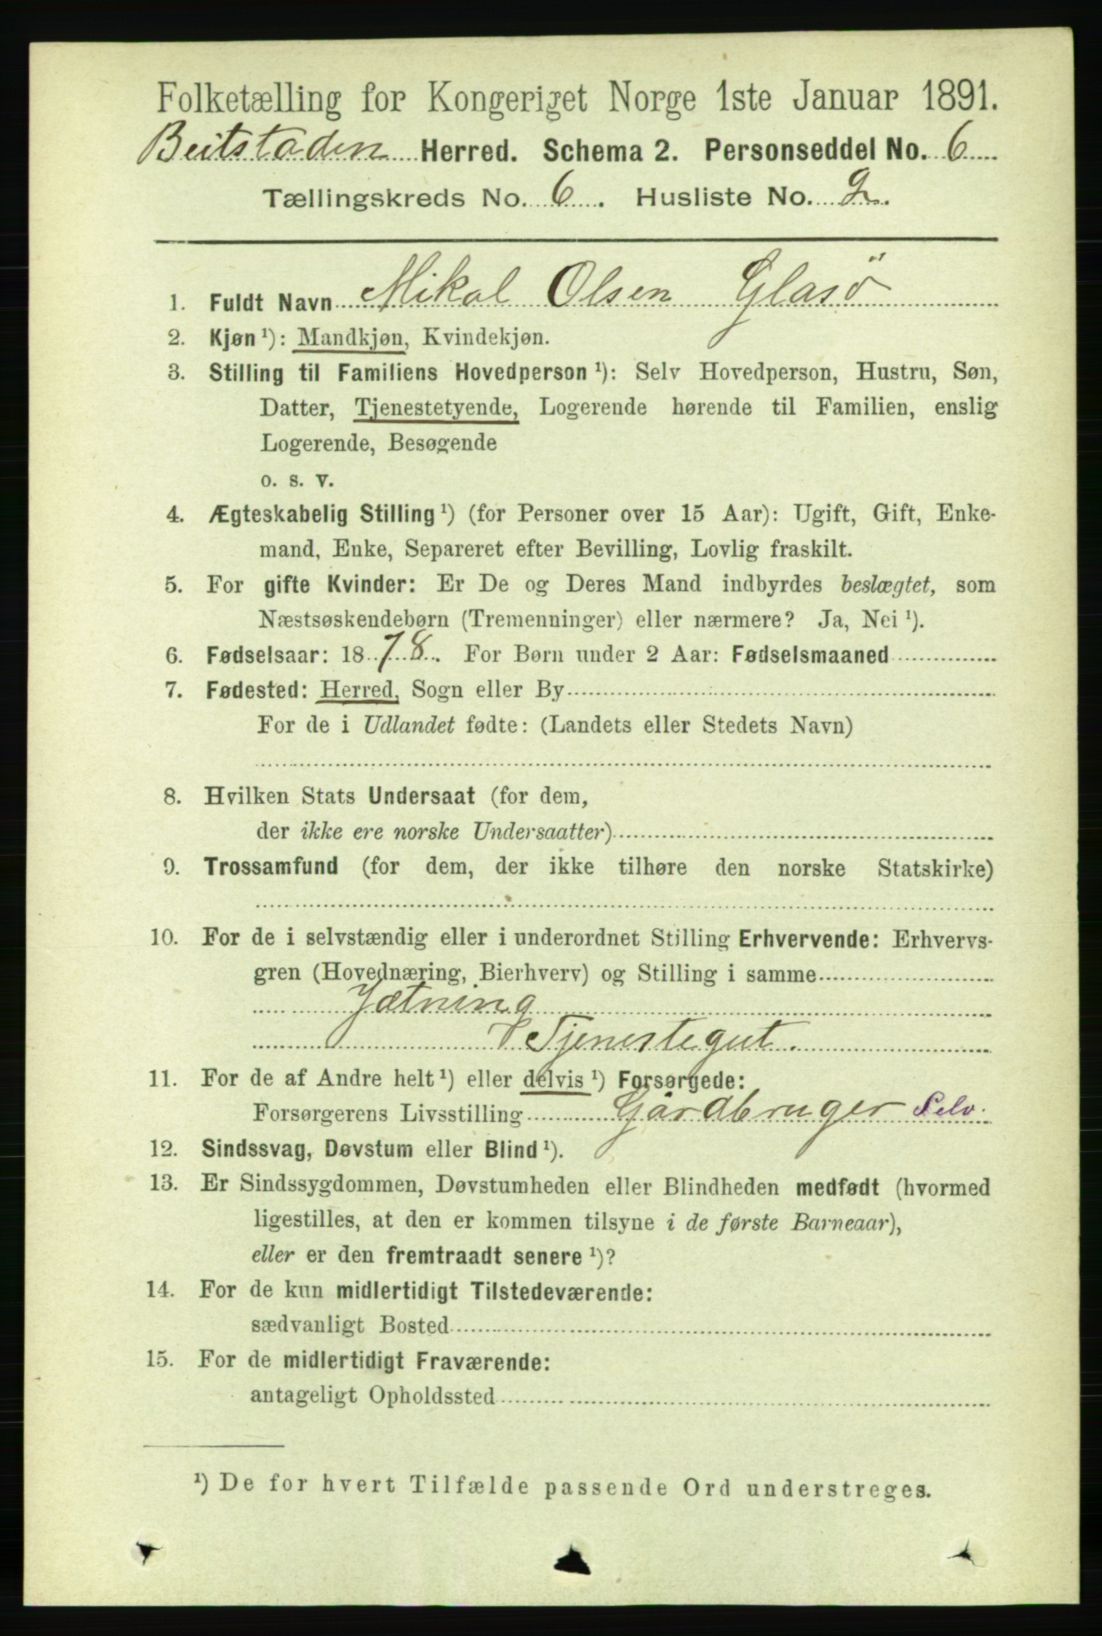 Folketælling for Kongeriget Norge 1ste Januar 1891.
Beitstaden Herred. Schema 2. Personseddel No. 6
Tællingskreds No. 6. Husliste No. 2.
1. Fuldt Navn Mikal Olsen Glasö
2. Kjøn ¹): Mandkjøn, Kvindekjøn.
3. Stilling til Familiens Hovedperson ¹): Selv Hovedperson, Hustru, Søn,
Datter, Tjenestetyende, Logerende hørende til Familien, enslig
Logerende, Besøgende
o. s. v.
4. Ægteskabelig Stilling ¹) (for Personer over 15 Aar): Ugift, Gift, Enke-
mand, Enke, Separeret efter Bevilling, Lovlig fraskilt.
5. For gifte Kvinder: Er De og Deres Mand indbyrdes beslægtet, som
Næstsøskendebørn (Tremenninger) eller nærmere? Ja, Nei ¹).
6. Fødselsaar: 1878. For Børn under 2 Aar: Fødselsmaaned
7. Fødested: Herred, Sogn eller By
For de i Udlandet fødte: (Landets eller Stedets Navn)
8. Hvilken Stats Undersaat (for dem,
der ikke ere norske Undersaatter)
9. Trossamfund (for dem, der ikke tilhøre den norske Statskirke)
10. For de i selvstændig eller i underordnet Stilling Erhvervende: Erhvervs-
gren (Hovednæring, Bierhverv) og Stilling i samme
Jætning
Tjenestegut.
11. For de af Andre helt ¹) eller delvis ¹) Forsørgede:
Forsørgerens Livsstilling Gårdbruger Selv.
12. Sindssvag, Døvstum eller Blind ¹).
13. Er Sindssygdommen, Døvstumheden eller Blindheden medfødt (hvormed
ligestilles, at den er kommen tilsyne i de første Barneaar),
eller er den fremtraadt senere ¹)?
14. For de kun midlertidigt Tilstedeværende:
sædvanligt Bosted
15. For de midlertidigt Fraværende:
antageligt Opholdssted
¹) De for hvert Tilfælde passende Ord understreges.